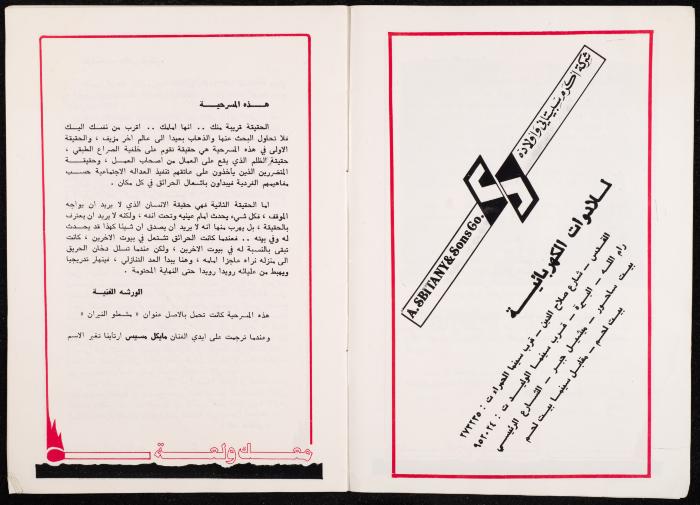 شركة اكرم سبيتاني واولاده
A. SBITANY & Sons Co.
للادوات الكهربائية
القدس - شارع صلاح الدين - قرب سينما الحمراء ت : ٢٧٢٢٣٥
رام الله - البيرة - قرب سينما الوليد ت : ٩٥٢٠٢٤
بيت ساحور - مشيل جبر - الشارع الرئيسي
بيت لحم - مقابل سينما بيت لحم
هذه المسرحية
الحقيقة قريبة منك .. انها امامك .. اقرب من نفسك اليك
فلا تحاول البحث عنها والذهاب بعيدا الى عالم اخر مزيف ، والحقيقة
الاولى في هذه المسرحية هي حقيقة تقوم على خلفية الصراع الطبقي ،
حقيقة الظلم الذي يقع على العمال من اصحاب العمل ، وحقيقة
المتضررين الذين يأخذون على عاتقهم تنفيذ العدالة الاجتماعية حسب
مفاهيمهم الفردية فيبدأون باشعال الحرائق في كل مكان .
اما الحقيقة الثانية فهي حقيقة الانسان الذي لا يريد ان يواجه
الموقف ، فكل شيء يحدث امام عينيه وتحت انفه ، ولكنه لا يريد ان يعترف
بالحقيقة ، بل يهرب منها انه لا يريد ان يصدق ان شيئا كهذا قد يحدث
له وفي بيته .. فعندما كانت الحرائق تشتعل في بيوت الاخرين ، كانت
تبقى بالنسبة له في بيوت الاخرين ، ولكن عندما تسلل دخان الحريق
الى منزله نراه عاجزا امامه ، وهنا يبدأ العد التنازلي ، فينهار تدريجيا
ويهبط من عليائه رويدا رويدا حتى النهاية المحتومة .
الورشه الفنية
هذه المسرحية كانت تحمل بالاصل عنوان « مشعلو النيران »
وعندما ترجمت على ايدي الفنان مايكل مسيس ارتأينا تغير الاسم
معك ولعة